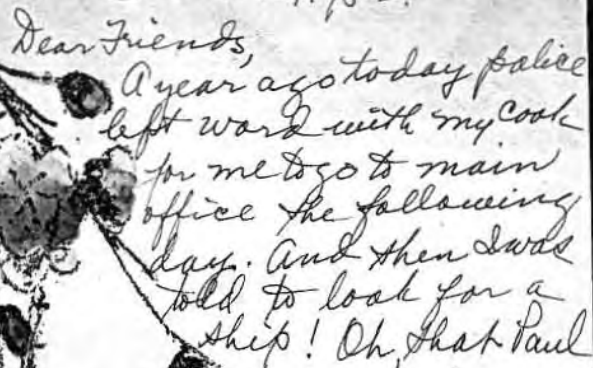 Dear Friends,
A year ago today police
left word with my cook
for me to go to main
office the following
day. And then I was
told to look for a
ship! Oh, that Paul